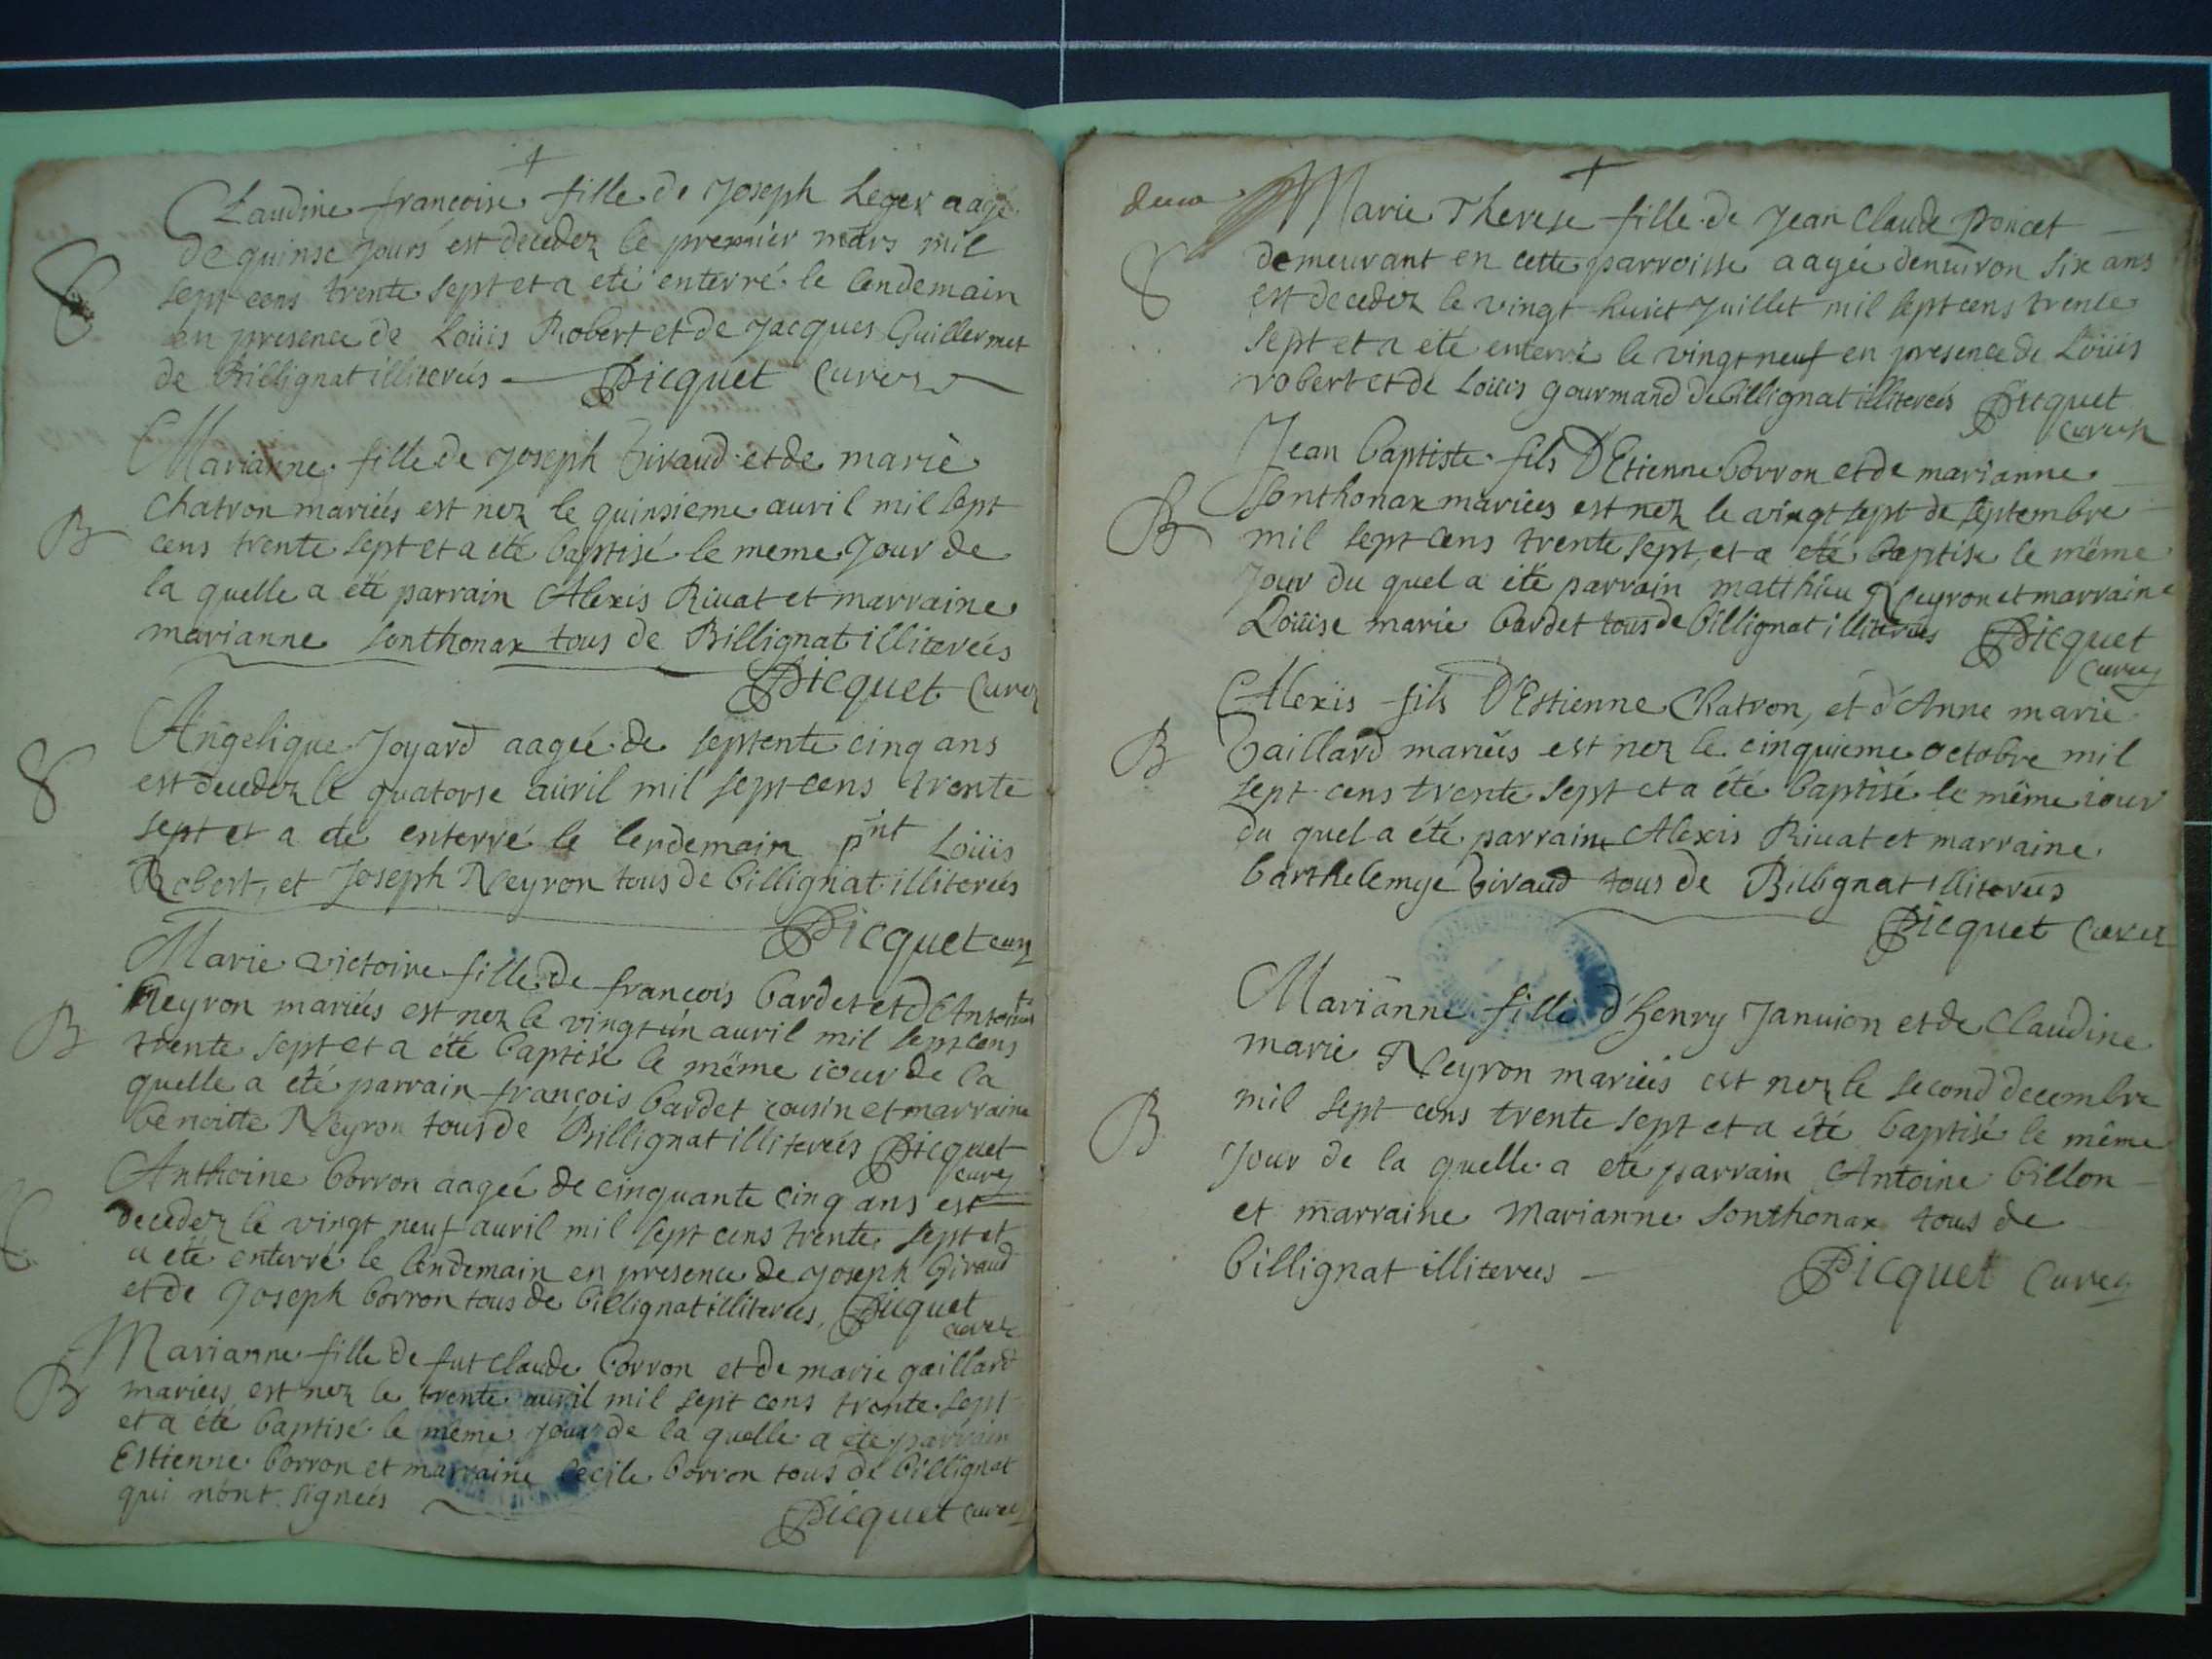 +
Claudine francoise fille de Joseph Leger aagé
de quinse jours est decedez le premier mars mil
sept cens trente sept et a eté enterré le lendemain
en presence de Loüis Robert et de Jacques Guillermet
de Billignat illiterés Picquet Curez
Marianne fille de Joseph Giraud et de marie
Chatron mariées est nez le quinsieme auril mil sept
B cens trente sept et a eté baptisé le meme Jour de
la quelle a été parrain Alexis Riuat et marraine
marianne Sonthonax tous de Billignat illiterés
Picquet Curez
Angelique Joyard aagée de septente cinq ans
est decedez le quatorse auril mil sept cens trente
sept et a eté enterré le lendemain pnt Loüis
Robert, et Joseph Neyron tous de billignat illiterés
Picquet curez
Marie victoire fille de francois bardet et d'Antoinete
Neyron mariées est nez le vingt ún auril mil sept cens
B trente sept et a été baptisé le même iour de la
quelle a eté parrain françois bardet cousin et marraine
benoitte Neyron tous de Billignat illiterés Picquet
curez
Anthoine borron aageé de cinquante cinq ans est
decedez le vingt neuf auril mil sept cens trente sept et
a eté enterré le lendemain en presence de Joseph Giraud
et de Joseph borron tous de billignat illiterées, Picquet
curez
Marianne fille de fut Claude borron et de marie gaillard
B mariées est nez le trente auril mil sept cens trente sept
et a été baptisé le même jour de la quelle a eté parrain
Estienne borron et marraine Cecile borron tous de billignat
qui nont signeés
Picquet curez
+
deux
Marie Therese fille de Jean Claude Poncet
demeurant en cette parroisse aagée denuiron six ans
est decedez le vingt huict Juillet mil sept cens trente
sept et a eté enterré le vingt neuf en presence de Loüis
robert et de Loüis gourmand de billignat illiterées Picquet
curez
Jean baptiste fils D'Etienne borron et de marianne
Sonthonax mariées est nez le vingt sept de septembre
B mil sept cens trente sept, et a eté baptise le même
Jour du quel a été parrain matthieu Neyron et marraine
Loüise marie bardet tous de billignat illiterées Picquet
curez
Alexis fils D'Estienne Chatron, et d'Anne marie
B Gaillard mariées est nez le cinquieme octobre mil
sept cens trente sept et a été baptisé le même iour
du quel a été parrain Alexis Riuat et marraine
barthelemye Giraud tous de Billignat illiterées
Picquet Curez
Marianne fille d'henry Januion et de Claudine
marie Neyron mariées est nez le second decembre
B mil sept cens trente sept et a été baptisé le même
Jour de la quelle a eté parrain Antoine billon
et marraine Marianne Sonthonax tous de
billignat illiterees
Picquet Curez